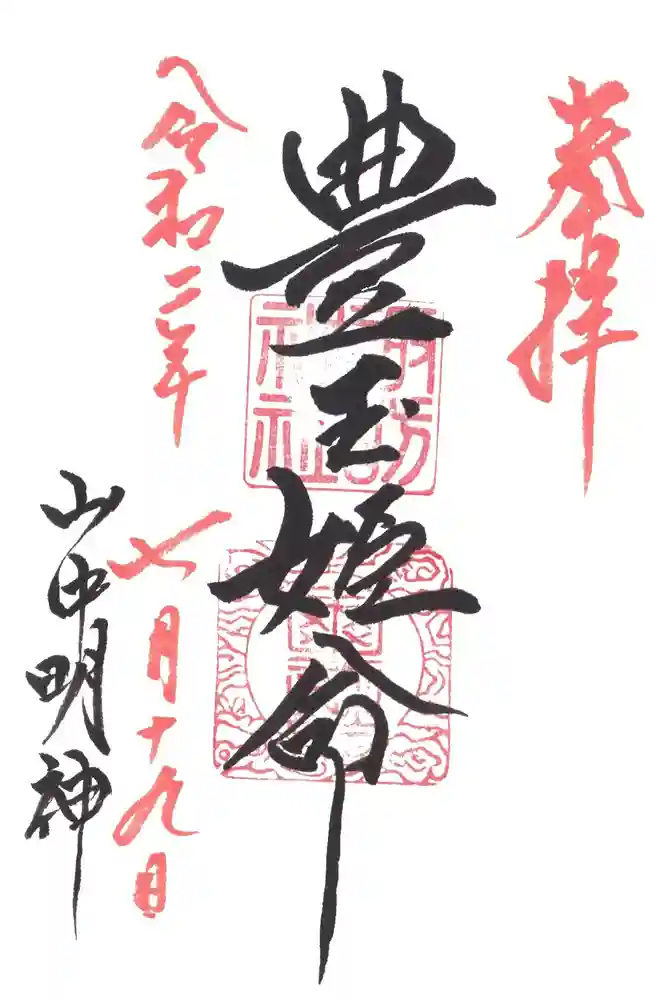 奉拝
豊玉姫命
令和二年
七月十九日
山中明神